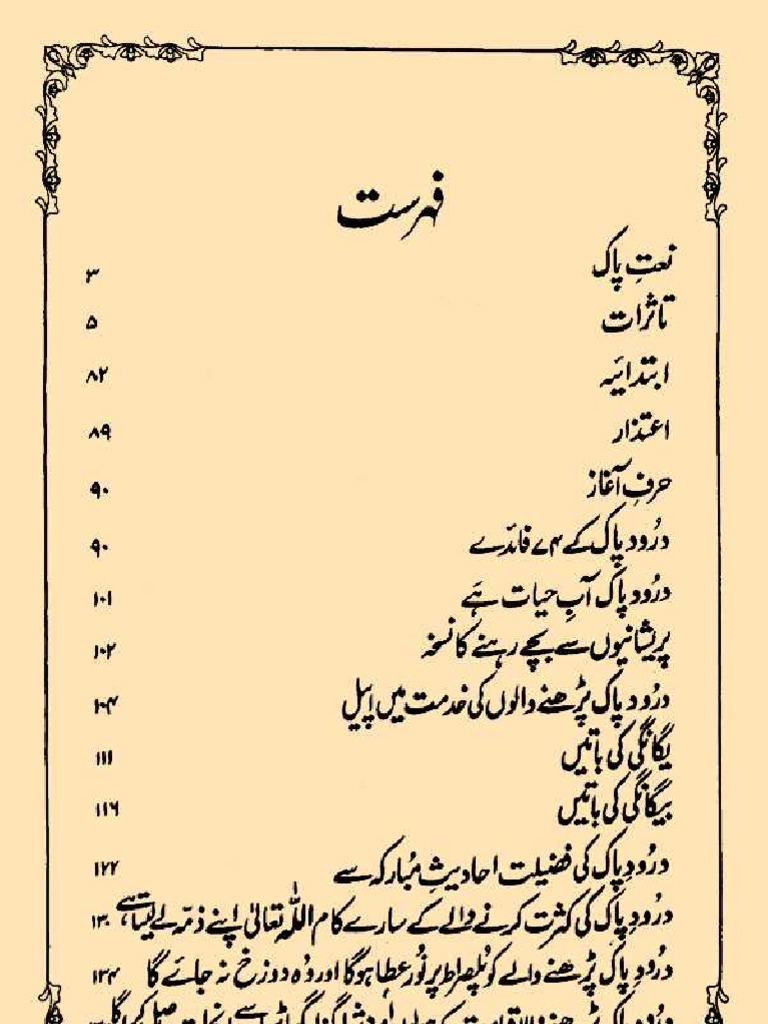 فہرست
نعتِ پاک ۳
تاثرات ۵
ابتدائیہ ۸۲
اعتذار ۸۹
حرفِ آغاز ۹۰
درُود پاک کے ۷۴ فائدے ۹۰
درُود پاک آبِ حیات ہے ۱۰۱
پریشانیوں سے بچے رہنے کا نسخہ ۱۰۲
درُود پاک پڑھنے والوں کی خدمت میں اپیل ۱۰۴
یگانگی کی باتیں ۱۱۱
بیگانگی کی باتیں ۱۱۶
درُودِ پاک کی فضیلت احادیثِ مُبارکہ سے ۱۲۲
درُودِ پاک کی کثرت کرنے والے کے سارے کام اللہ تعالیٰ اپنے ذمّہ لے لیتا ہے ۱۳۰
درُودِ پاک پڑھنے والے کو پُلصراط پر نُور عطا ہوگا اور وُہ دوزخ میں نہ جائے گا ۱۳۴
درُود پاک پڑھنے والا قیامت کے